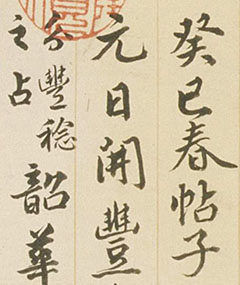 癸巳春帖子
元日開豐
今豐稔
之占
韶華